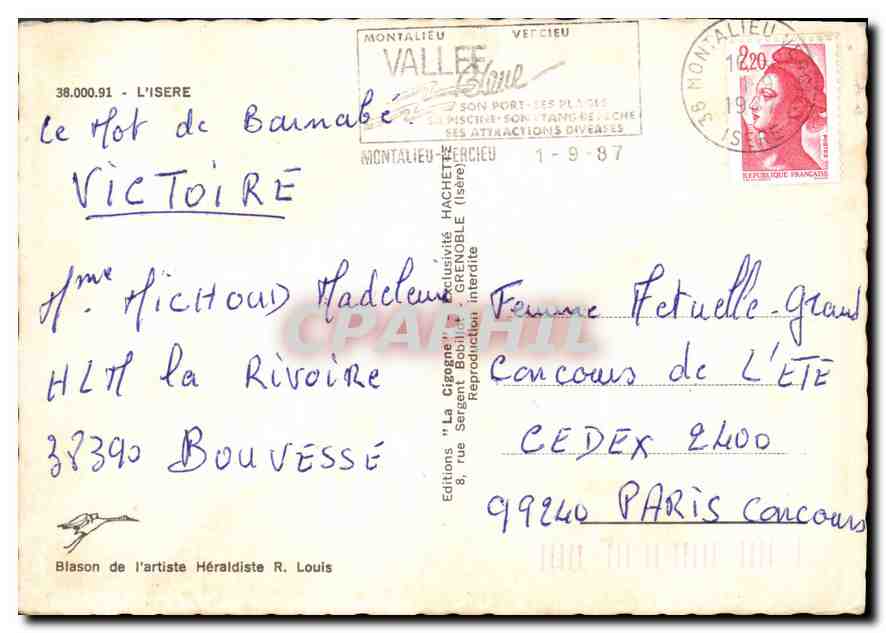 38.000.91 - L'ISERE
Le Mot de Barnabé
VICTOIRE
Mme. MICHOUD Madeleine
HLM la Rivoire
38390 BOUVESSE
Blason de l'artiste Héraldiste R. Louis
MONTALIEU VERCIEU
VALLEE
Bleue
SON PORT-SES PLAGES
SA PISCINE-SON ETANG DE PECHE
SES ATTRACTIONS DIVERSES
MONTALIEU-VERCIEU 1-9-87
38 MONTALIEU VERCIEU
ISERE
2,20
POSTES
REPUBLIQUE FRANÇAISE
Editions "La Cigogne" Exclusivité HACHETTE
8, rue Sergent Bobillot - GRENOBLE (Isère)
Reproduction interdite
CPARHIL
Femme Actuelle-Grand
Concours de L'ETE
CEDEX 2400
99240 PARIS Concours